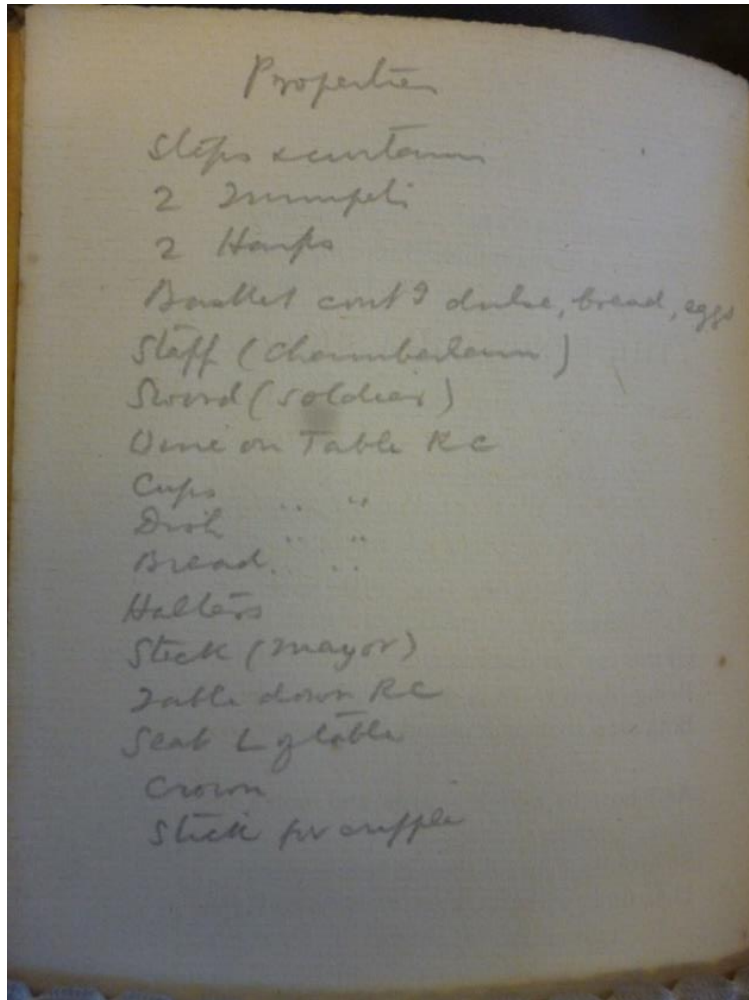 Properties
Steps & curtains
2 Trumpets
2 Harps
Basket contg dulse, bread, eggs
Staff (Chamberlain)
Sword (soldier)
on Table RC
Cups " "
Dish " "
Bread " "
Halters
Stick (Mayor)
Table down RC
Seat L of table
Crown
Stick for cripple